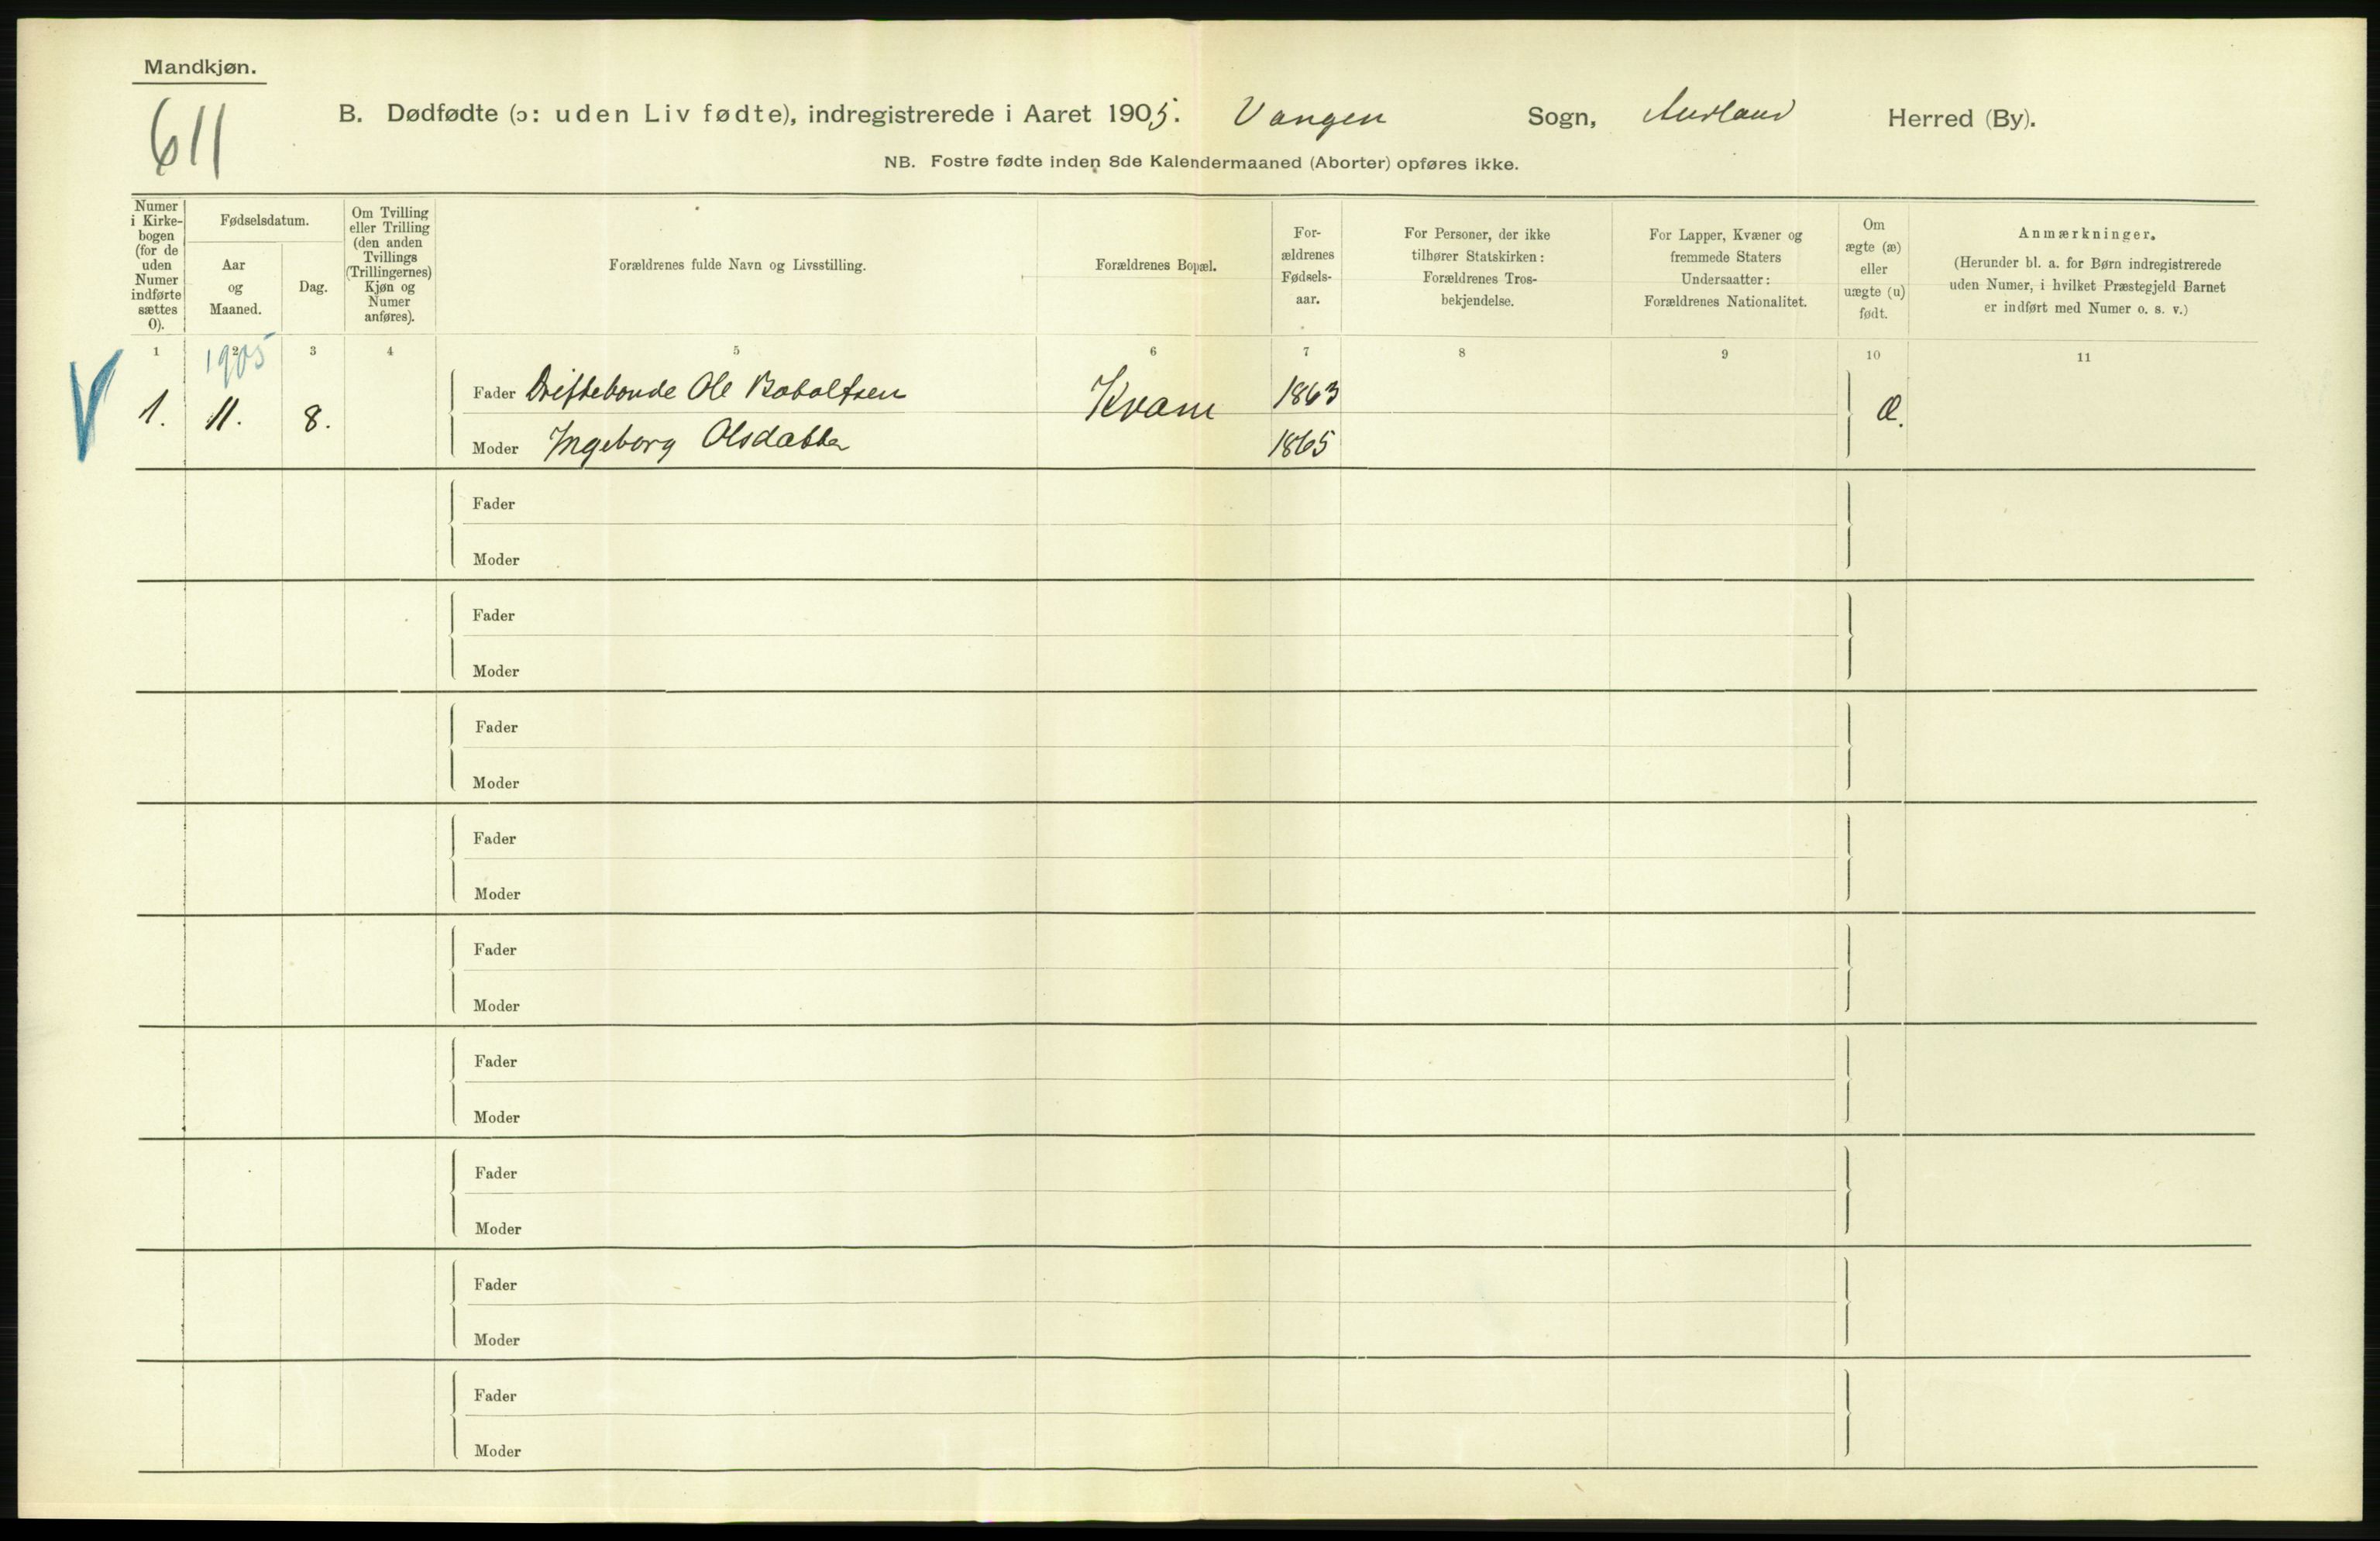 Mandkjøn.
611
B. Dødfødte (ɔ: uden Liv fødte), indregistrerede i Aaret 1905. Vangen Sogn, Aurland Herred (By).
NB. Fostre fødte inden 8de Kalendermaaned (Aborter) opføres ikke.
Numer
i Kirke-
bogen
(for de
uden
Numer
indførte
sættes
0).
Fødselsdatum.
Aar
og
Maaned.
Dag.
Om Tvilling
eller Trilling
(den anden
Tvillings
(Trillingernes)
Kjøn og
Numer
anføres).
Forældrenes fulde Navn og Livsstilling.
Forældrenes Bopæl.
For-
ældrenes
Fødsels-
aar.
For Personer, der ikke
tilhører Statskirken:
Forældrenes Tros-
bekjendelse.
For Lapper, Kvæner og
fremmede Staters
Undersaatter:
Forældrenes Nationalitet.
Om
ægte (æ)
eller
uægte (u)
født.
Anmærkninger.
(Herunder bl. a. for Børn indregistrerede
uden Numer, i hvilket Præstegjeld Barnet
er indført med Numer o. s. v.)
1 2 3 4 5 6 7 8 9 10 11
1905
V 1. 11. 8. Fader Driftebonde Ole Botolfsen Kvam 1863 Æ.
Moder Ingeborg Olsdatter 1865
Fader
Moder
Fader
Moder
Fader
Moder
Fader
Moder
Fader
Moder
Fader
Moder
Fader
Moder
Fader
Moder
Fader
Moder